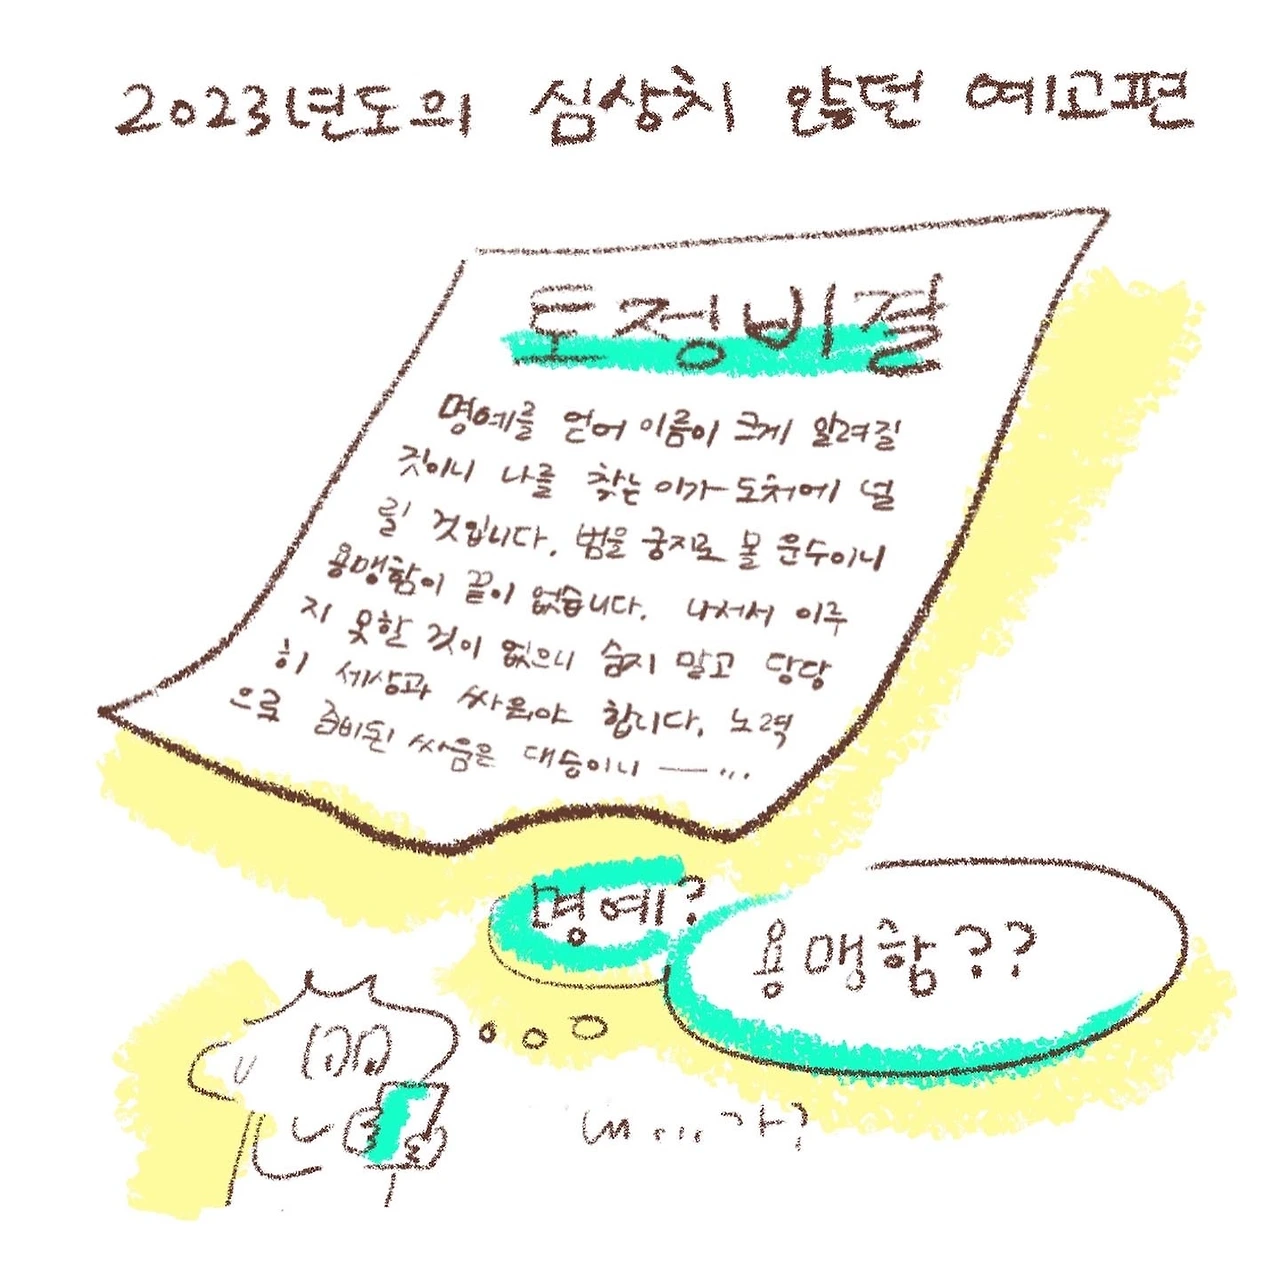 2023년도의 심상치 않던 예고편
토정비결
명예를 얻어 이름이 크게 알려질
것이니 나를 찾는 이가 도처에 널
릴 것입니다. 범을 궁지로 몰 운수이니
용맹함이 끝이 없습니다. 나서서 이루
지 못할 것이 없으니 숨지 말고 당당
히 세상과 싸워야 합니다. 노력
으로 준비된 싸움은 대승이니 —...
명예?
용맹함??
내...가?